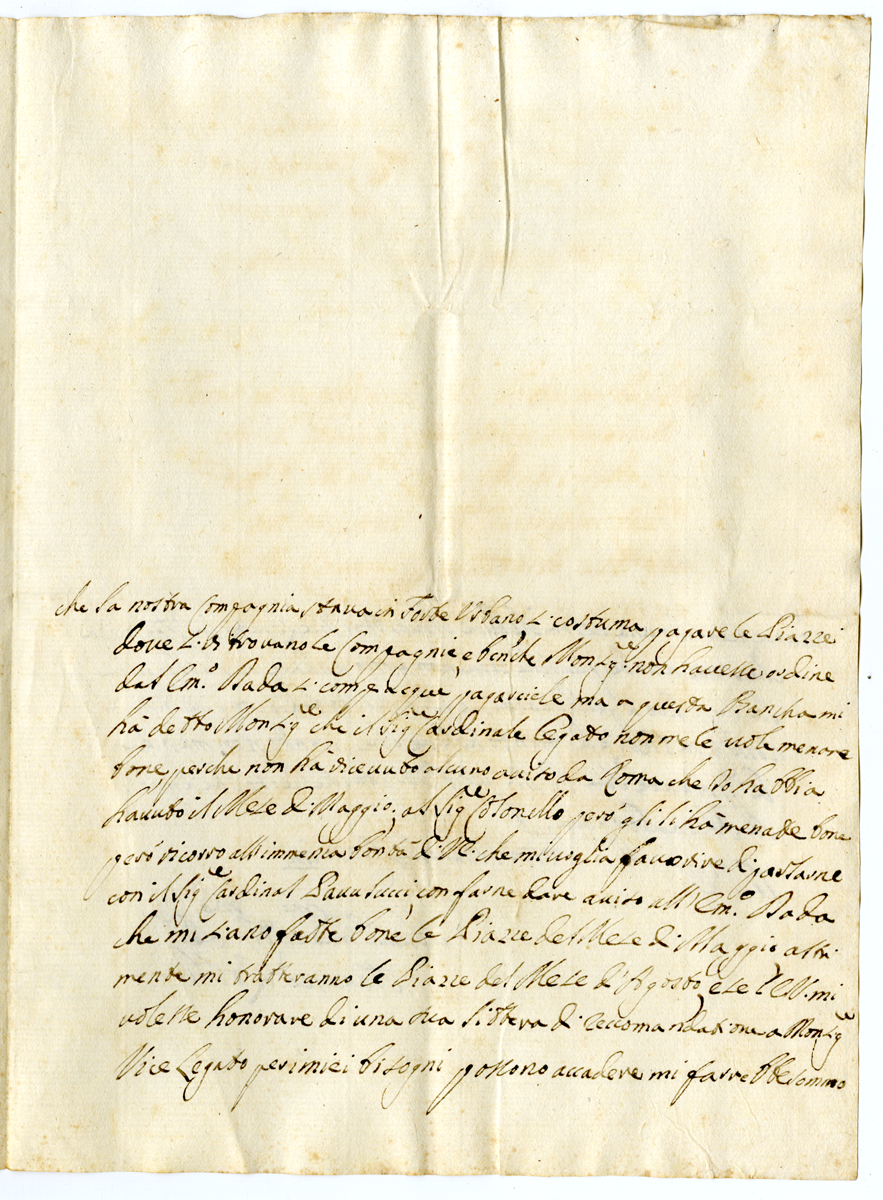 che la nostra Compagnia stava in Forte Urbano si costuma pagare le Piazze
dove si ritrovano le Compagnie, e benche Monsig.re non havesse ordine
dal Em.o Bada si compiacque pagarciele ma a questa Bancha mi
hà detto Monsig.re che il Sig.re Cardinale Legato non me le vole menare
bone perche non hà ricevuto alcuno aviso da Roma che Io habbia
havuto il Mese di Maggio, al Sig.re Colonello però gli li hà menatte bone
però ricorro all'immensa bontà di VE. che mi voglia favorire di parlarne
con il Sig.re Cardinal Paulucci, con farne dare aviso all'Em.o Bada
che mi siano fatte bone le Piazze del Mese di Maggio altri
mente mi tratteranno le Piazze del Mese d'Agosto, e se l'E.V. mi
volesse honorare di una sua littera di reccomandatione a Monsig.re
Vice Legato per i miei bisogni possono accadere mi farebbe sommo